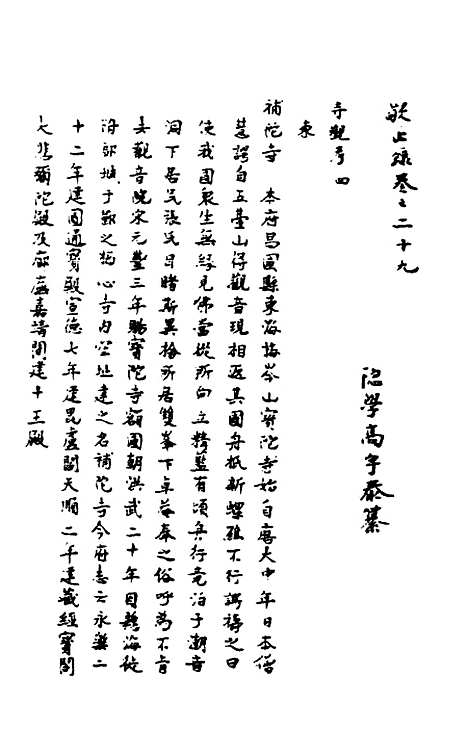 敬止录卷之二十九
隐学高宇泰纂
寺觀考四
東
補陀寺 本府昌国縣東海梅岑山寶陀寺始自唐大中年日本僧
慧諤自五臺山得觀音現相返其国舟抵新螺礁不行諤禱之曰
使我国衆生無緣見佛當從所向立精藍有頃舟行竟泊于潮音
洞下居民張氏目睹斯異捨所居雙峯下卓菴奉之俗呼為不肯
去觀音院宋元豐三年賜寶陀寺額國朝洪武二十年因懸海徙
府郭城于鄞之栖心寺内空址建之名補陀寺今府志云永樂二
十二年建圆通寳殿宣德七年建毘盧閣天順二年建藏經寳閣
大悲彌陀殿及廊廡嘉靖間建十王殿